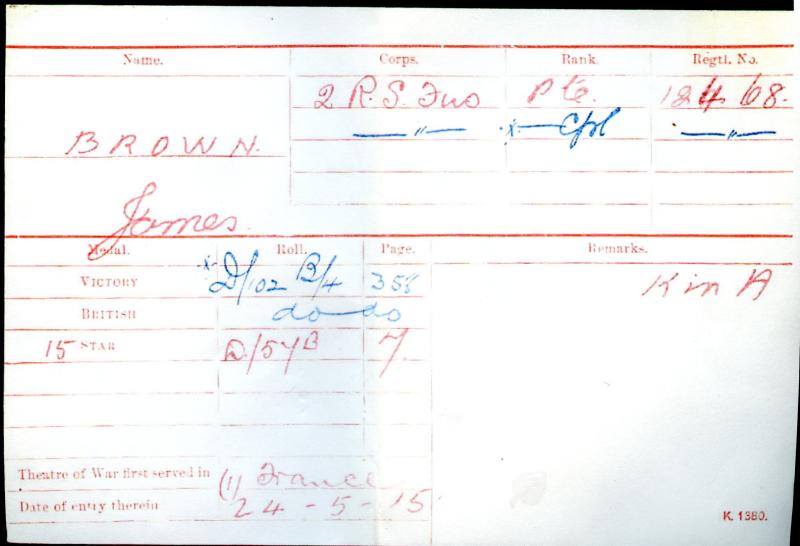 Name. Corps. Rank. Regtl. No.
2 R.S. Fus Pte. 12468.
—〃— x—Cpl —〃—
BROWN.
James.
Medal. Roll. Page. Remarks.
VICTORY x D/102 B/4 358 K in A
BRITISH do do
15 STAR D/57B 7
Theatre of War first served in (1) France
Date of entry therein 24-5-15
K. 1380.